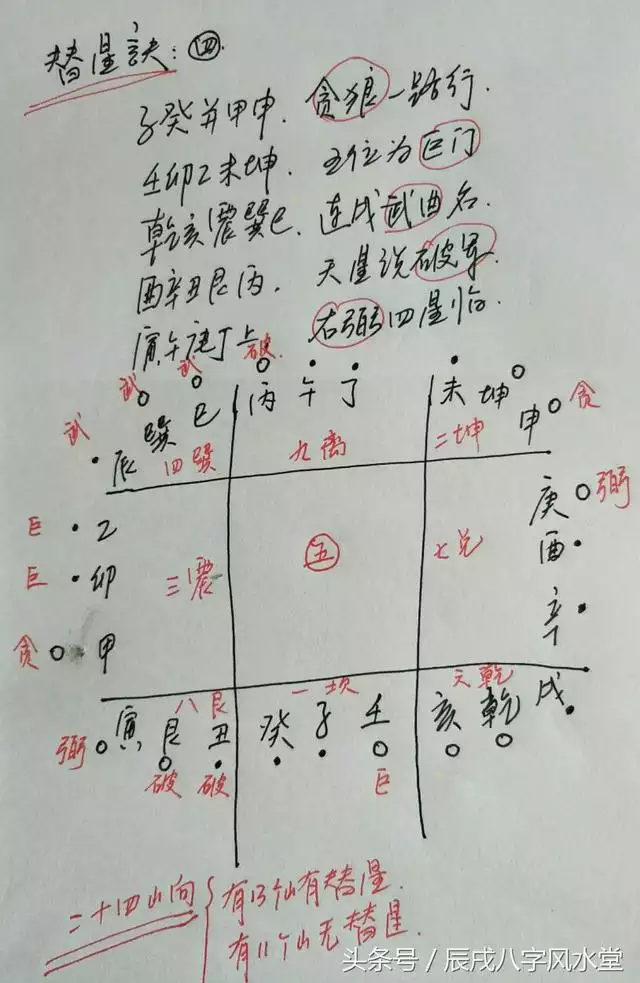 替星诀:㊃.
子癸并甲申. 贪狼一路行.
壬卯乙未坤. 五位为巨门
乾亥辰巽巳. 连戌武曲名.
酉辛丑艮丙. 天星说破军.
寅午庚丁上 右弼四星临.
武 武 武 破
辰 巽 巳 丙 午 丁 未 坤 申 贪
四巽 九离 二坤
巨 乙 庚 弼
巨 卯 三震 五 七兑 酉
贪 甲 辛
八艮 一坎 六乾
弼 寅 艮 丑 癸 子 壬 亥 乾 戌
破 破 巨
二十四山向
有13个山有替星.
有11个山无替星.
头条号/辰戌八字风水堂